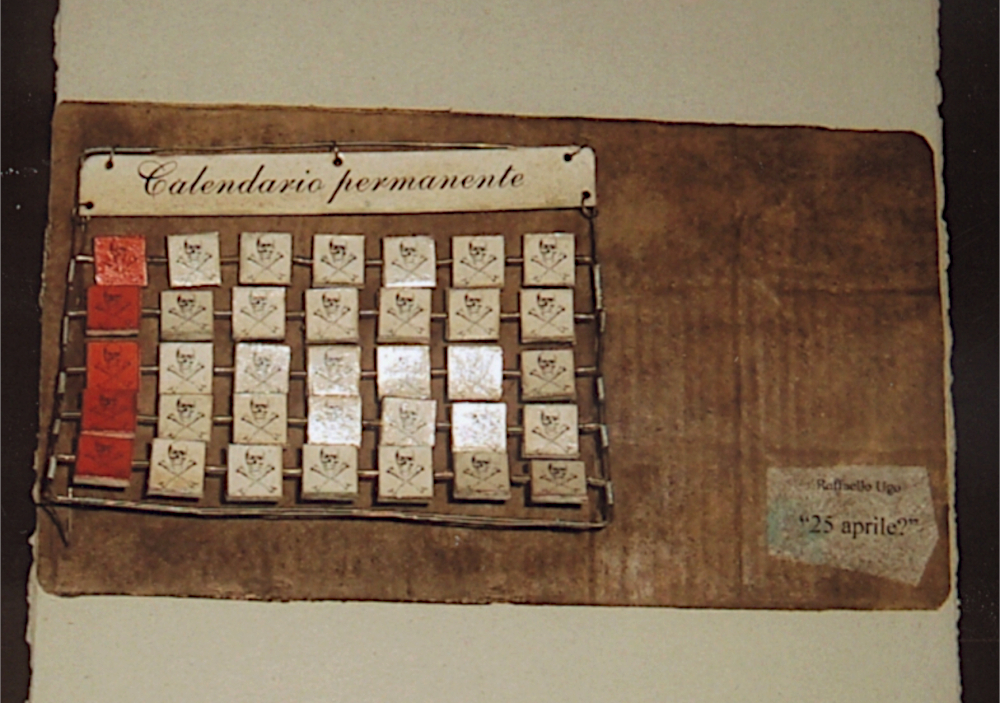 Calendario permanente
Raffaello Ugo
“25 aprile?”